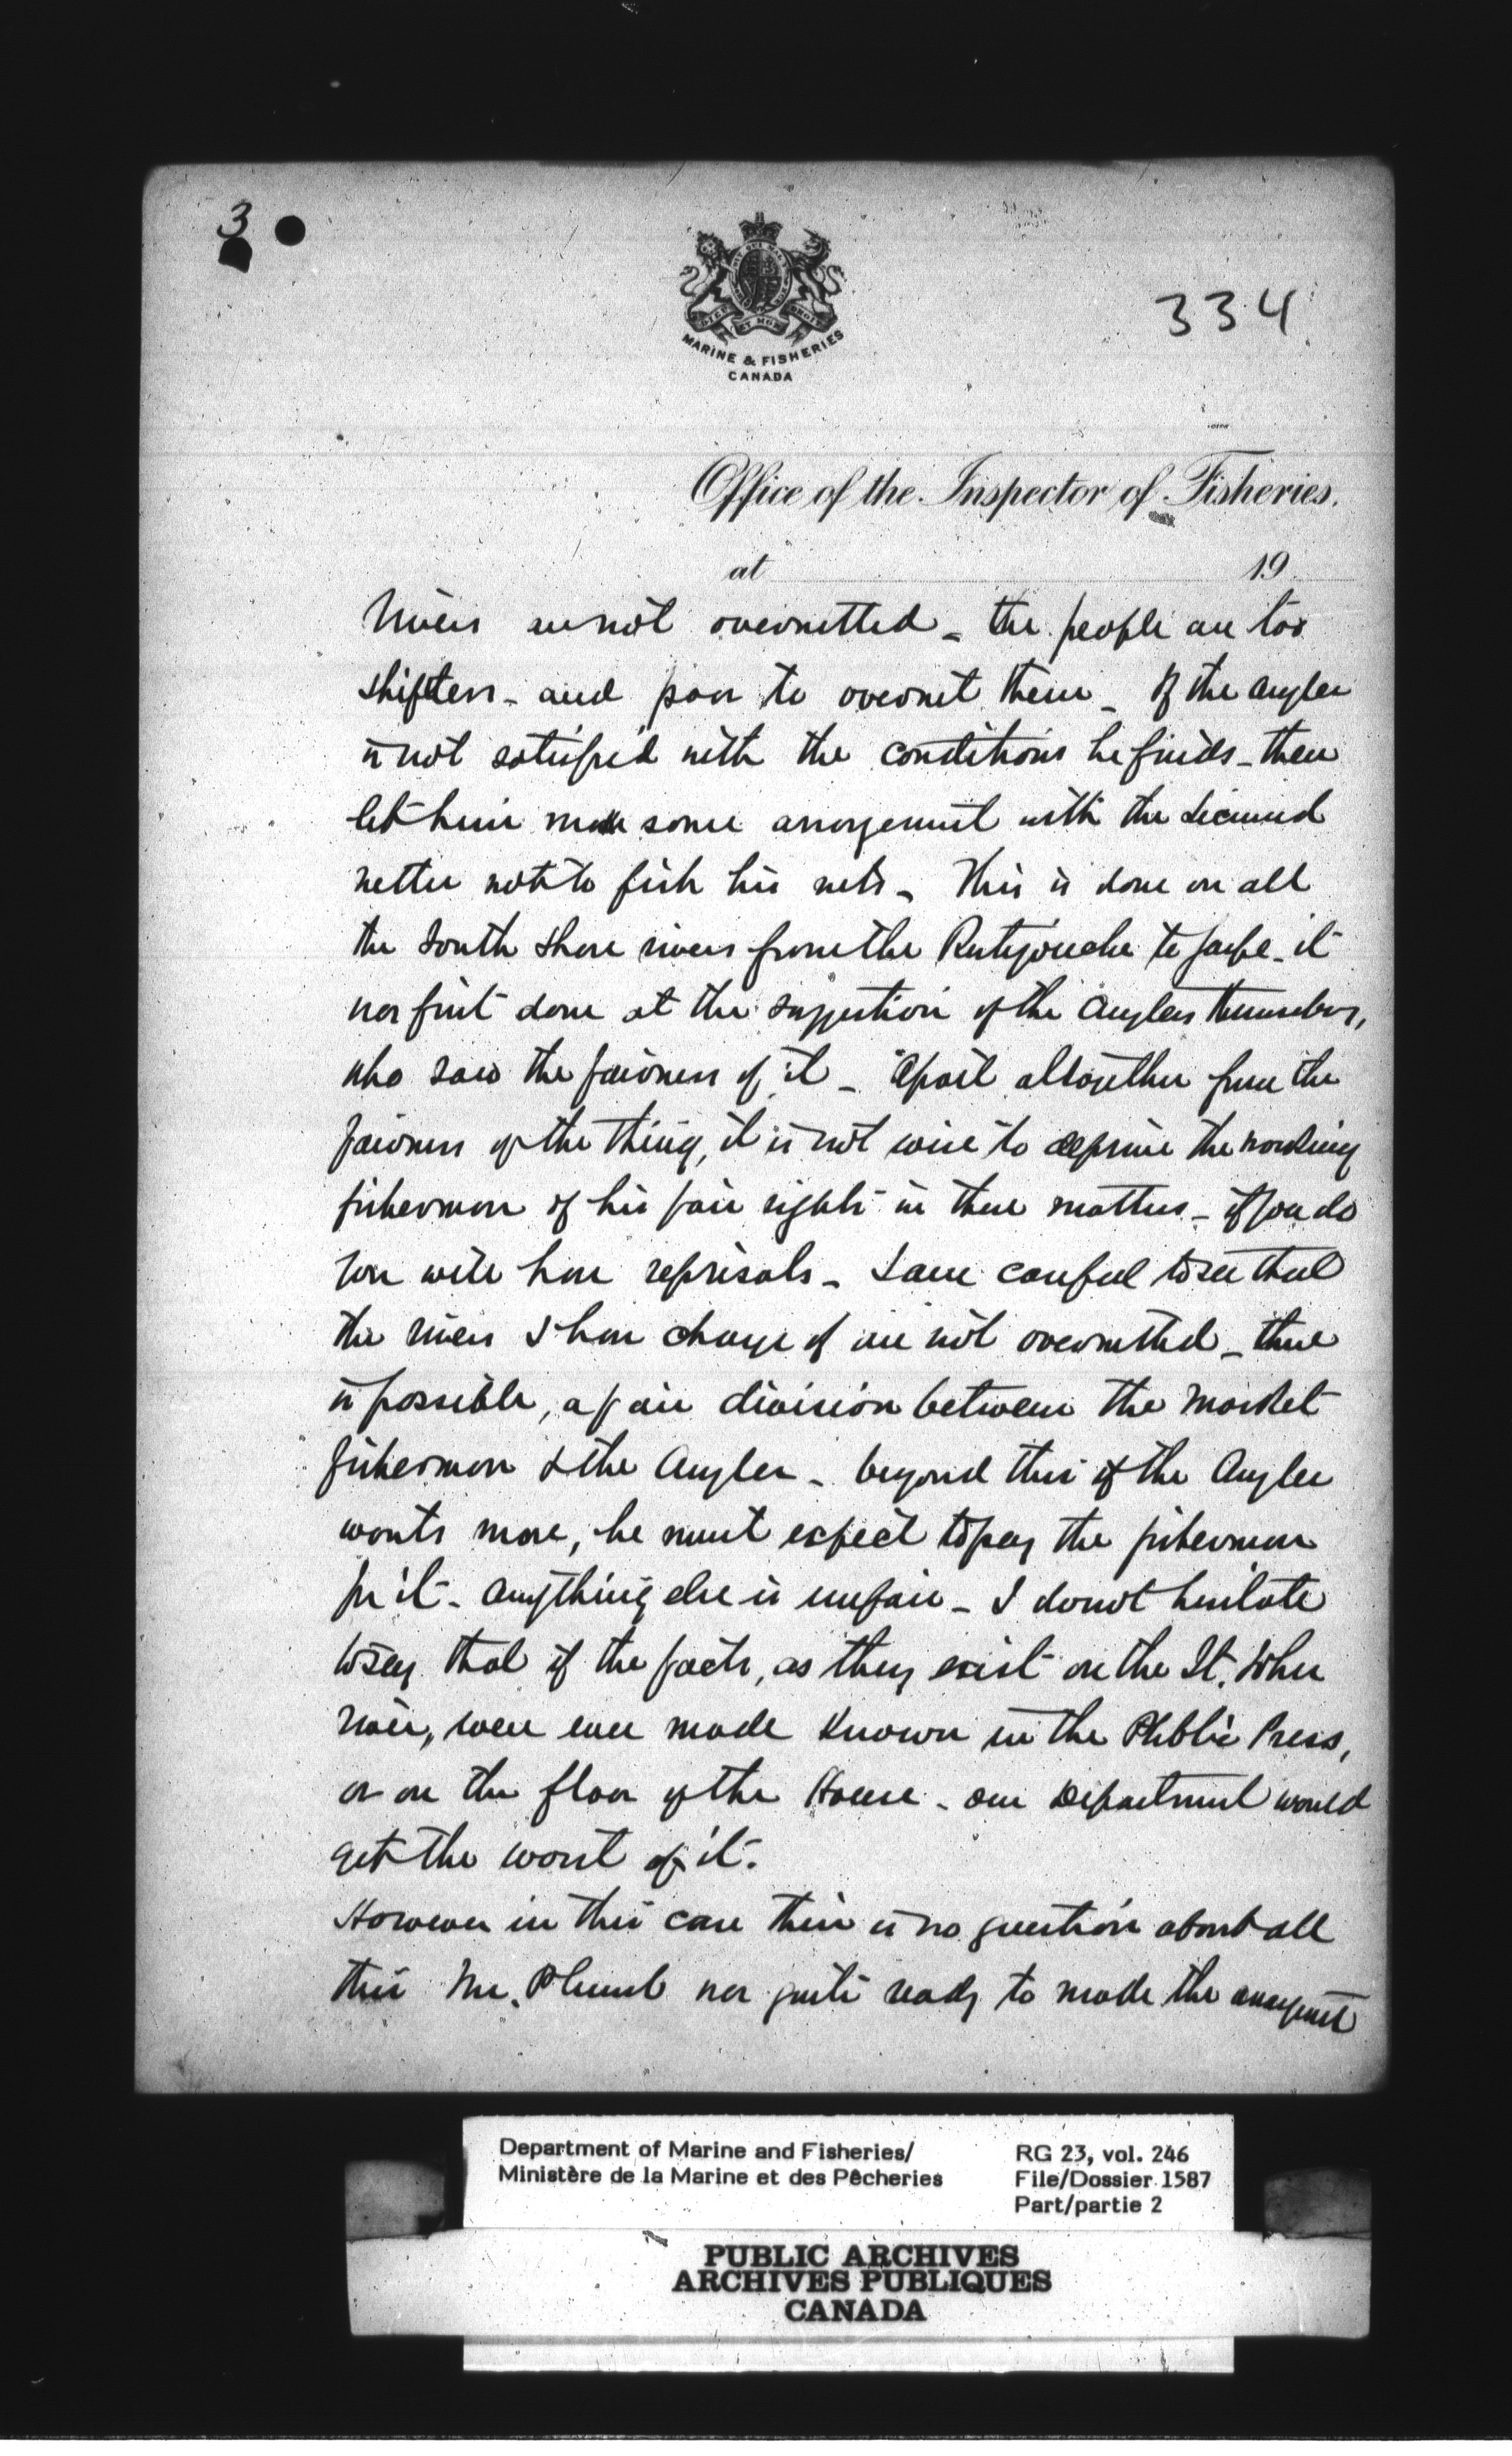 3
334
DIEU ET MON DROIT
MARINE & FISHERIES
CANADA
Office of the Inspector of Fisheries.
at 19
rivers are not overnetted - the people are too
shiftless - and poor to overnet them - If the angler
is not satisfied with the conditions he finds - then
let him make some arrangement with the licensed
netter not to fish his nets - This is done on all
the South Shore rivers from the Restigouche to Gaspe - it
was first done at the suggestion of the Anglers themselves,
who saw the fairness of it - Apart altogether from the
fairness of the thing, it is not wise to deprive the working
fisherman of his fair rights in these matters - if you do
you will have reprisals - I am careful to see that
the rivers I have charge of are not overnetted - there
is possible, a fair division between the market
fisherman & the Angler - beyond this if the Angler
wants more, he must expect to pay the fisherman
for it - anything else is unfair - I do not hesitate
to say that if the facts, as they exist on the St. John
river, were ever made known in the Public Press,
or on the floor of the House - our Department would
get the worst of it.
However in this case there is no question about all
this Mr. Plumb was quite ready to made the arrangement
Department of Marine and Fisheries/
Ministère de la Marine et des Pêcheries
RG 23, vol. 246
File/Dossier 1587
Part/partie 2
PUBLIC ARCHIVES
ARCHIVES PUBLIQUES
CANADA